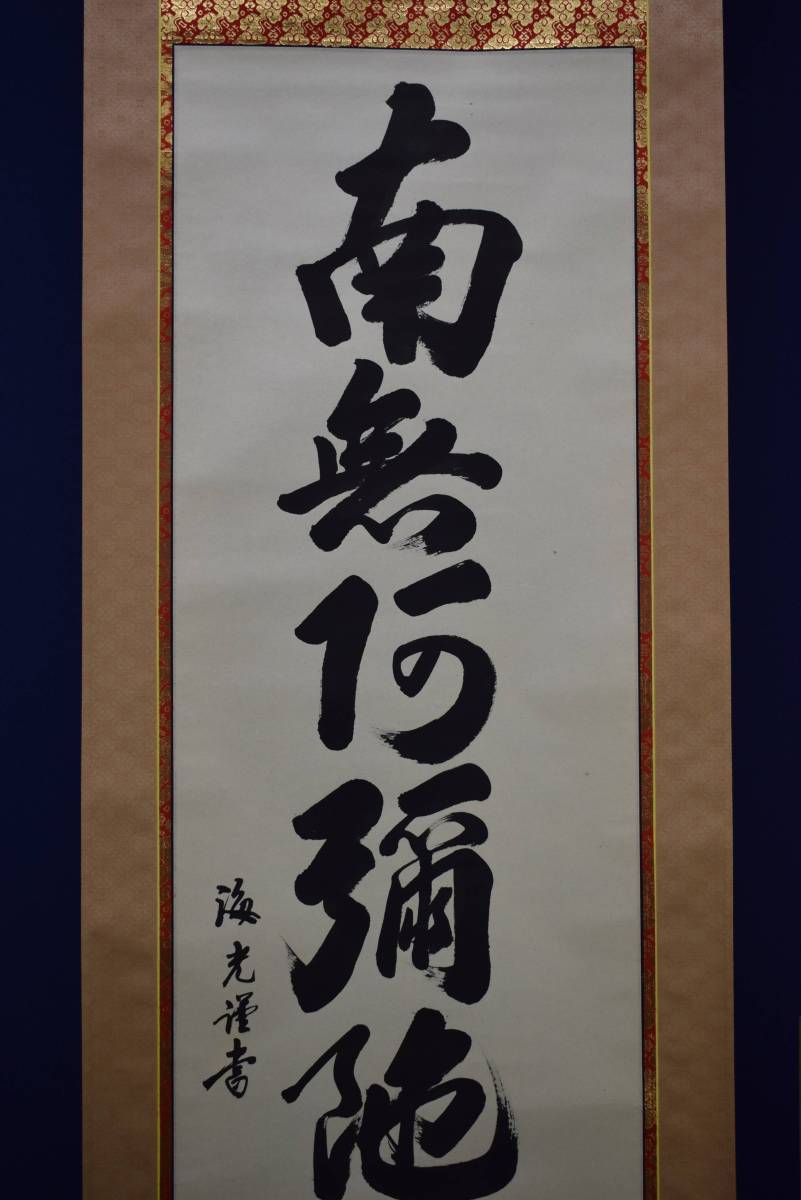 南無阿彌陀
海光謹書